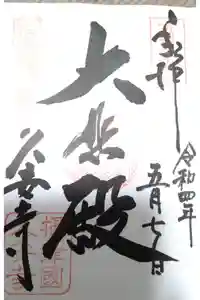 奉拝
令和四年
五月七日
大悲殿
久安寺